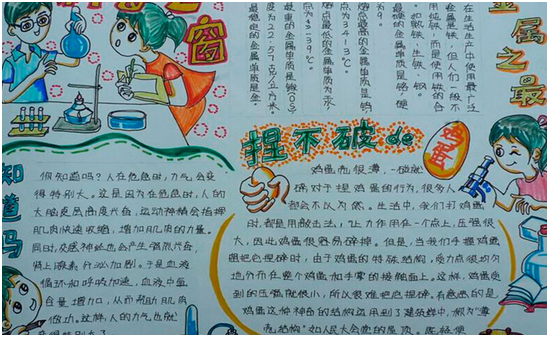 窗
金属之最
在生活生产中使用最广泛
金属是铁,但人们一般不
用纯铁,而是使用铁的合
最硬的金属单质是铬,硬
熔点最高的金属单质是钨
点为3413℃。
熔点最低的金属单质为汞
点为-39℃。
最重的金属单质是锇(Os)
度为22.57克/立方米。
知道吗
你知道吗?人在危急时,力气会变
得特别大。这是因为在危急时,人的
大脑皮层高度兴奋,运动神经会指挥
肌肉快速收缩,增加肌肉的力量。
同时,交感神经也会产生强烈兴奋,
肾上腺素分泌加剧。于是血液
循环和呼吸加速,血液中氧
含量增加,从而帮助肌肉
做功。这样,人的力气也就
捏不破de
鸡蛋
鸡蛋壳很薄,一碰就
碎,对于捏鸡蛋的行为,很多人
都会不以为然。生活中,我们打鸡蛋
时,都是用敲击法,让力作用在一个点上,压强很
大,因此鸡蛋很容易碎掉。但是,当我们手握鸡蛋
想把它捏碎时,由于鸡蛋的特殊结构,受力点很均匀
地分布在整个鸡蛋和手掌的接触面上。这样,鸡蛋受
到的压强就很小,所以很难把它捏碎。有意思的是
鸡蛋这种神奇的结构运用到了建筑学中,被称为“薄
壳结构”如人民大会堂的屋顶。既轻便